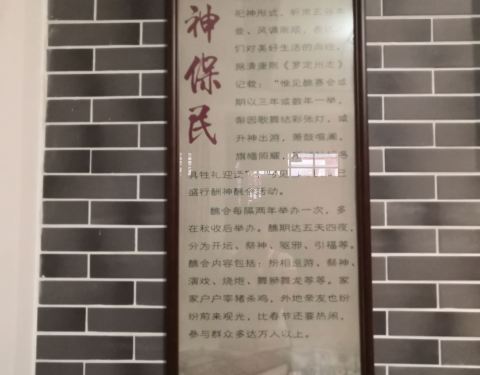 神保民
祀神形式，祈
风调雨顺，表
们对美好生活的向往。
据清康熙《罗定州志》
记载：“惟见醮赛会或
期以三年或数年一举，
梨园歌舞结彩张灯，或
升神出游，萧鼓喧阗，
旗幡
具牲礼迎
盛行酬神醮会活动。
醮会每隔两年举办一次，多
在秋收后举办。醮期达五天四夜，
分为开坛、祭神、驱邪、引福等。
醮会内容包括：
演戏、烧炮、舞狮舞龙等等。家
家户户宰猪杀鸡，外地亲友也纷
纷前来观光，比春节还要热闹，
参与群众多达万人以上。